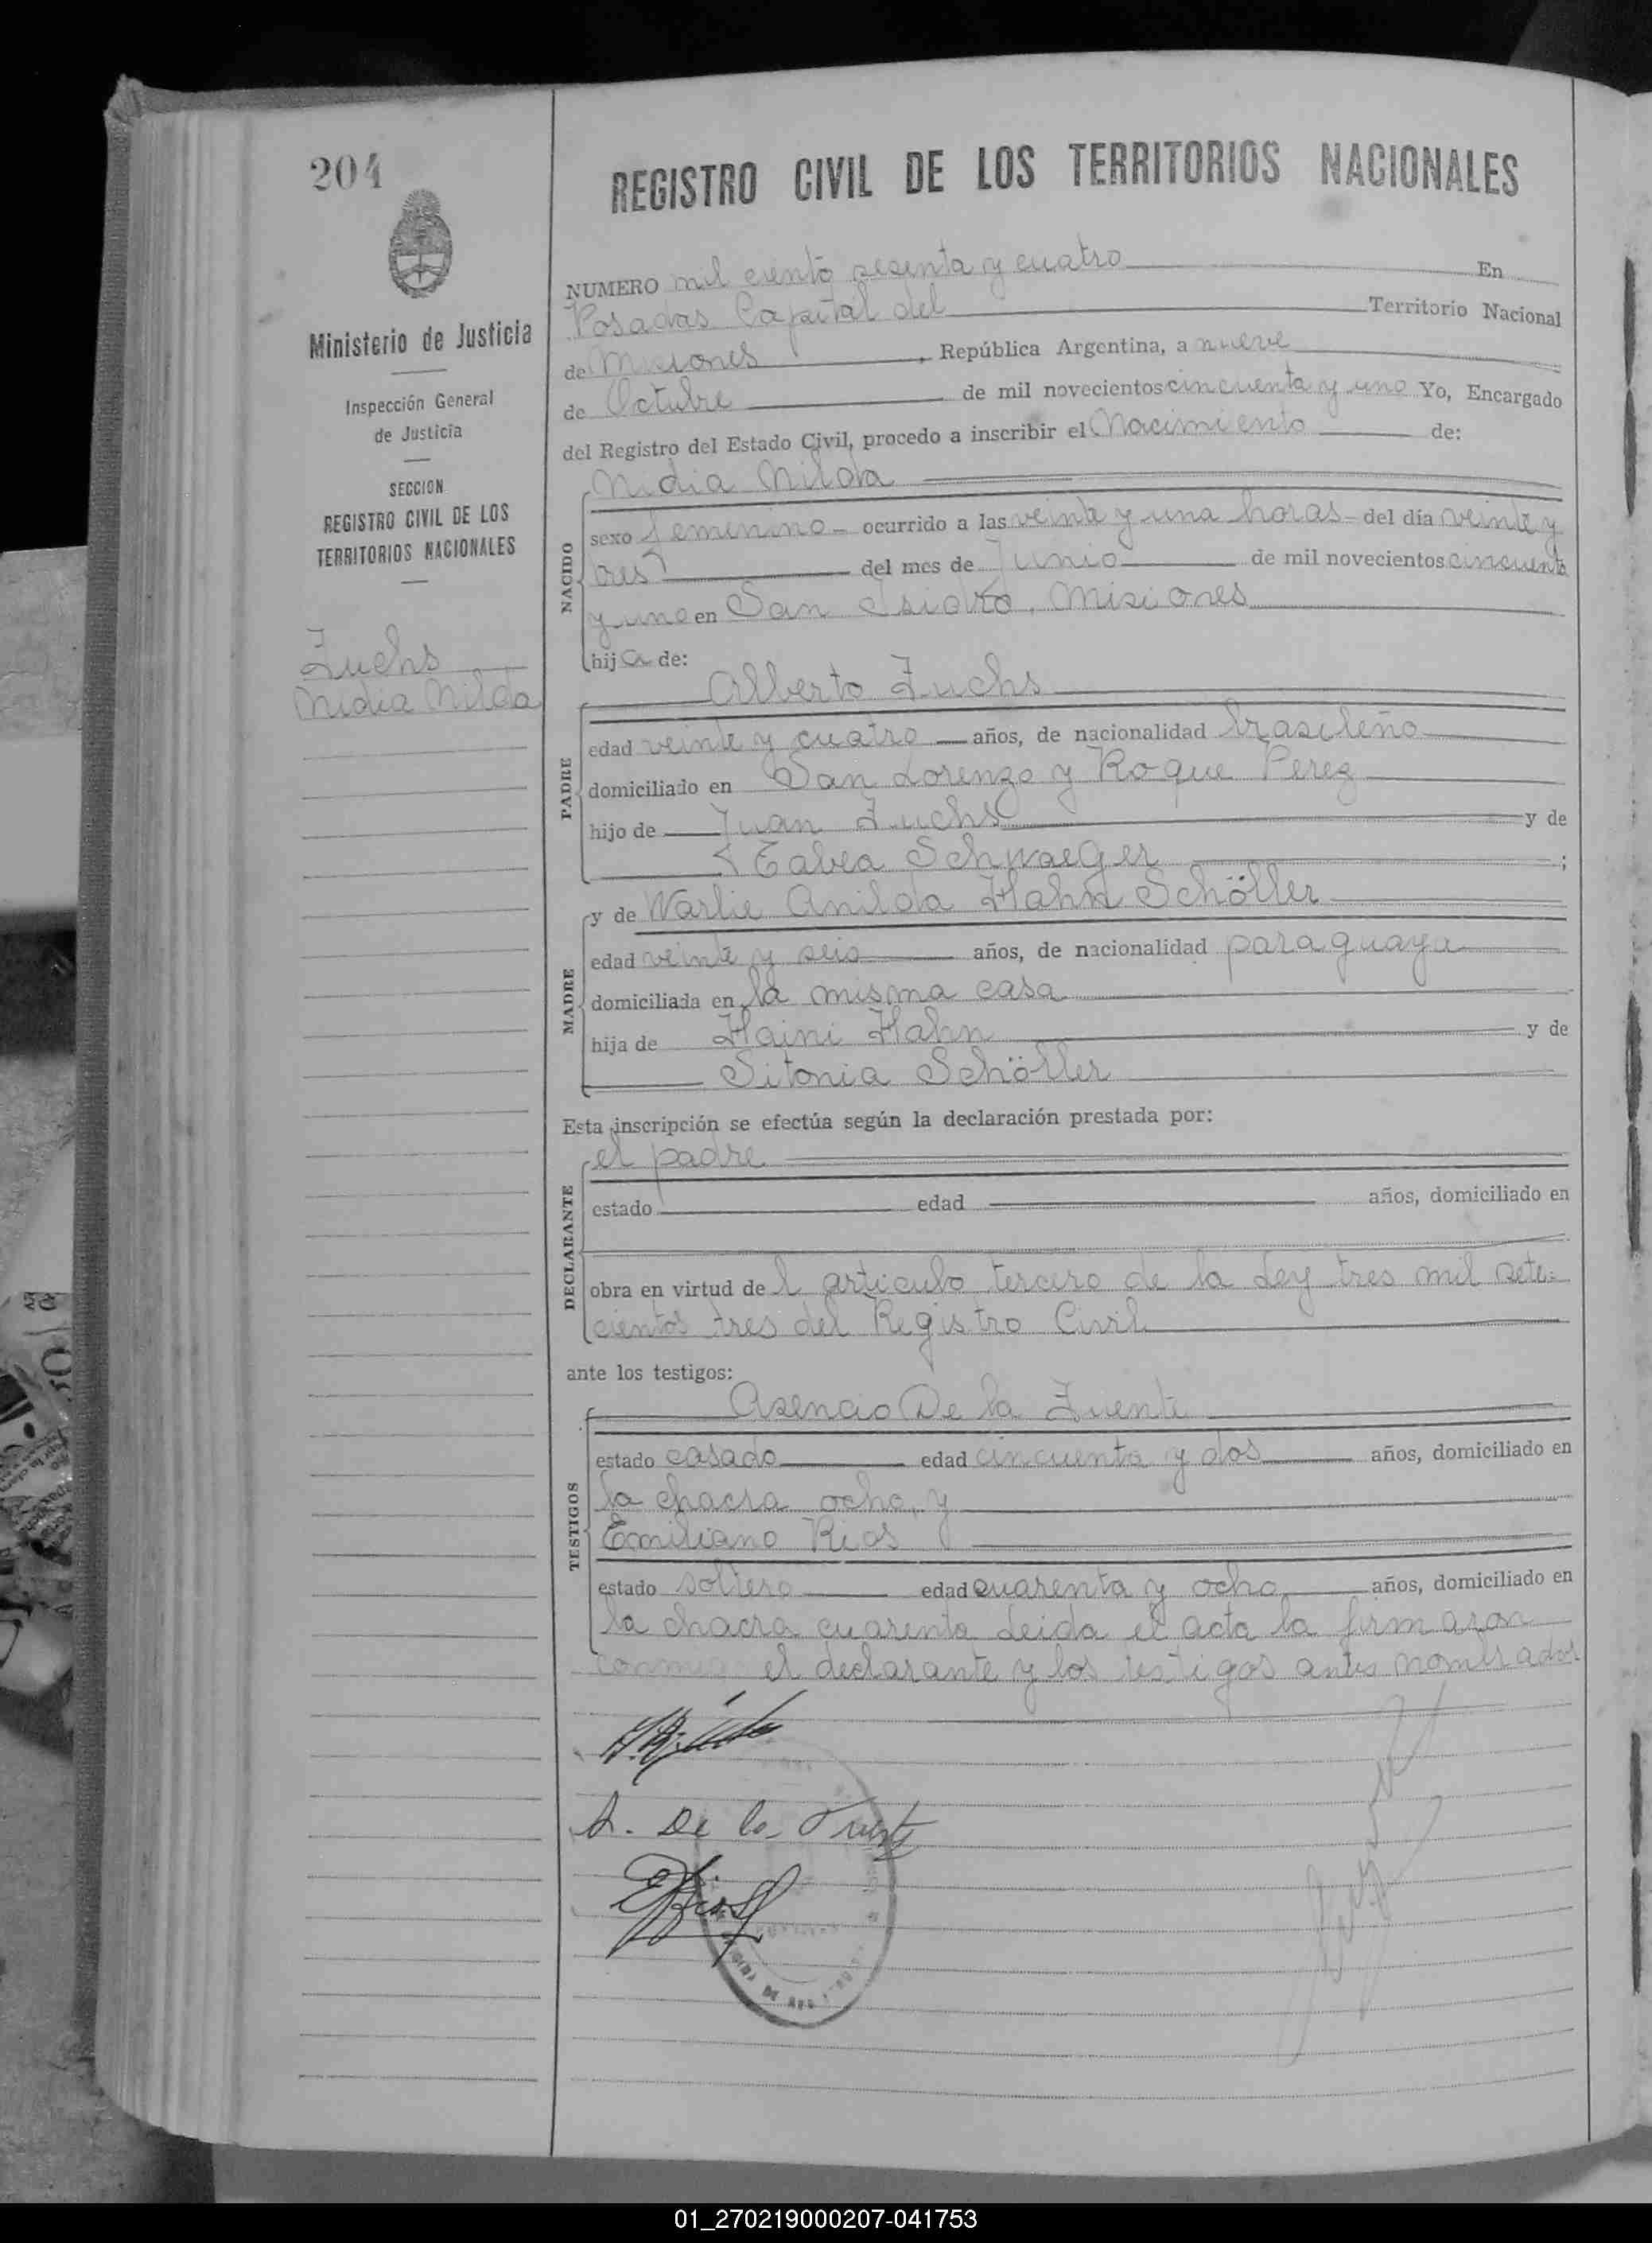 204
REGISTRO CIVIL DE LOS TERRITORIOS NACIONALES
Ministerio de Justicia
Inspección General
de Justicia
SECCION
REGISTRO CIVIL DE LOS
TERRITORIOS NACIONALES
Fuchs
Nidia Nilda
NUMERO mil ciento sesenta y cuatro En
Posadas Capital del Territorio Nacional
de Misiones, República Argentina, a nueve
de Octubre de mil novecientos cincuenta y uno Yo, Encargado
del Registro del Estado Civil, procedo a inscribir el Nacimiento de:
NACIDO
Nidia Nilda
sexo femenino ocurrido a las veinte y una horas del día veinte y
tres del mes de Junio de mil novecientos cincuenta
y uno en San Isidro, Misiones
hija de:
PADRE
Alberto Fuchs
edad veinte y cuatro años, de nacionalidad brasileño
domiciliado en San Lorenzo y Roque Perez
hijo de Juan Fuchs y de
Schwaeger;
MADRE
y de Warlie Anilda Hahn Schöller
edad veinte y seis años, de nacionalidad paraguaya
domiciliada en la misma casa
hija de Haini Hahn y de
Sitonia Schöller
Esta inscripción se efectúa según la declaración prestada por:
DECLARANTE
el padre
estado edad años, domiciliado en
obra en virtud del articulo tercero de la Ley tres mil sete-
cientos tres del Registro Civil
ante los testigos:
TESTIGOS
Asencio De la Fuente
estado casado edad cincuenta y dos años, domiciliado en
la chacra ocho, y
Emiliano Rios
estado soltero edad cuarenta y ocho años, domiciliado en
la chacra cuarenta Leida el acta la firmaron
conmigo el declarante y los testigos antes nombrados
A. De la Fuente
ERios
01_270219000207-041753